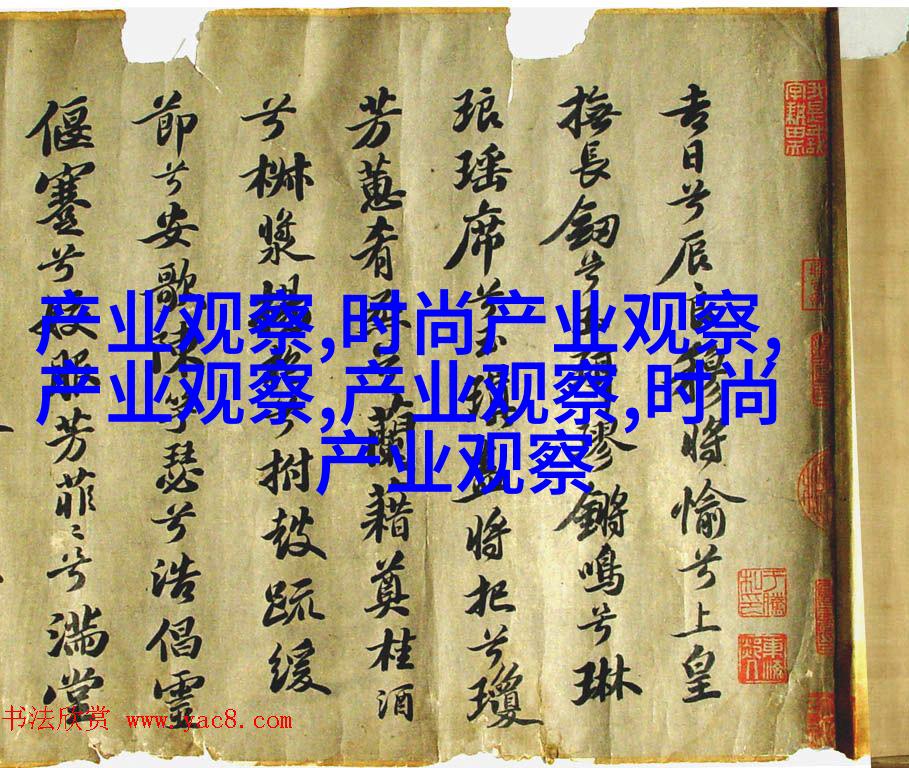 吉日兮辰良穆將愉兮上皇
撫長劒兮璆鏘鳴兮琳
琅瑶席兮玉將把兮瓊
芳蕙肴蘭藉奠桂酒
兮椒漿兮拊鼓疏緩
節兮安歌陳竽瑟兮浩倡靈
偃蹇兮姣服芳菲〻兮滿堂
产业观察,时尚产业观察,
产业观察,产业观察,时尚
产业观察
书法欣赏 www.yac8.com